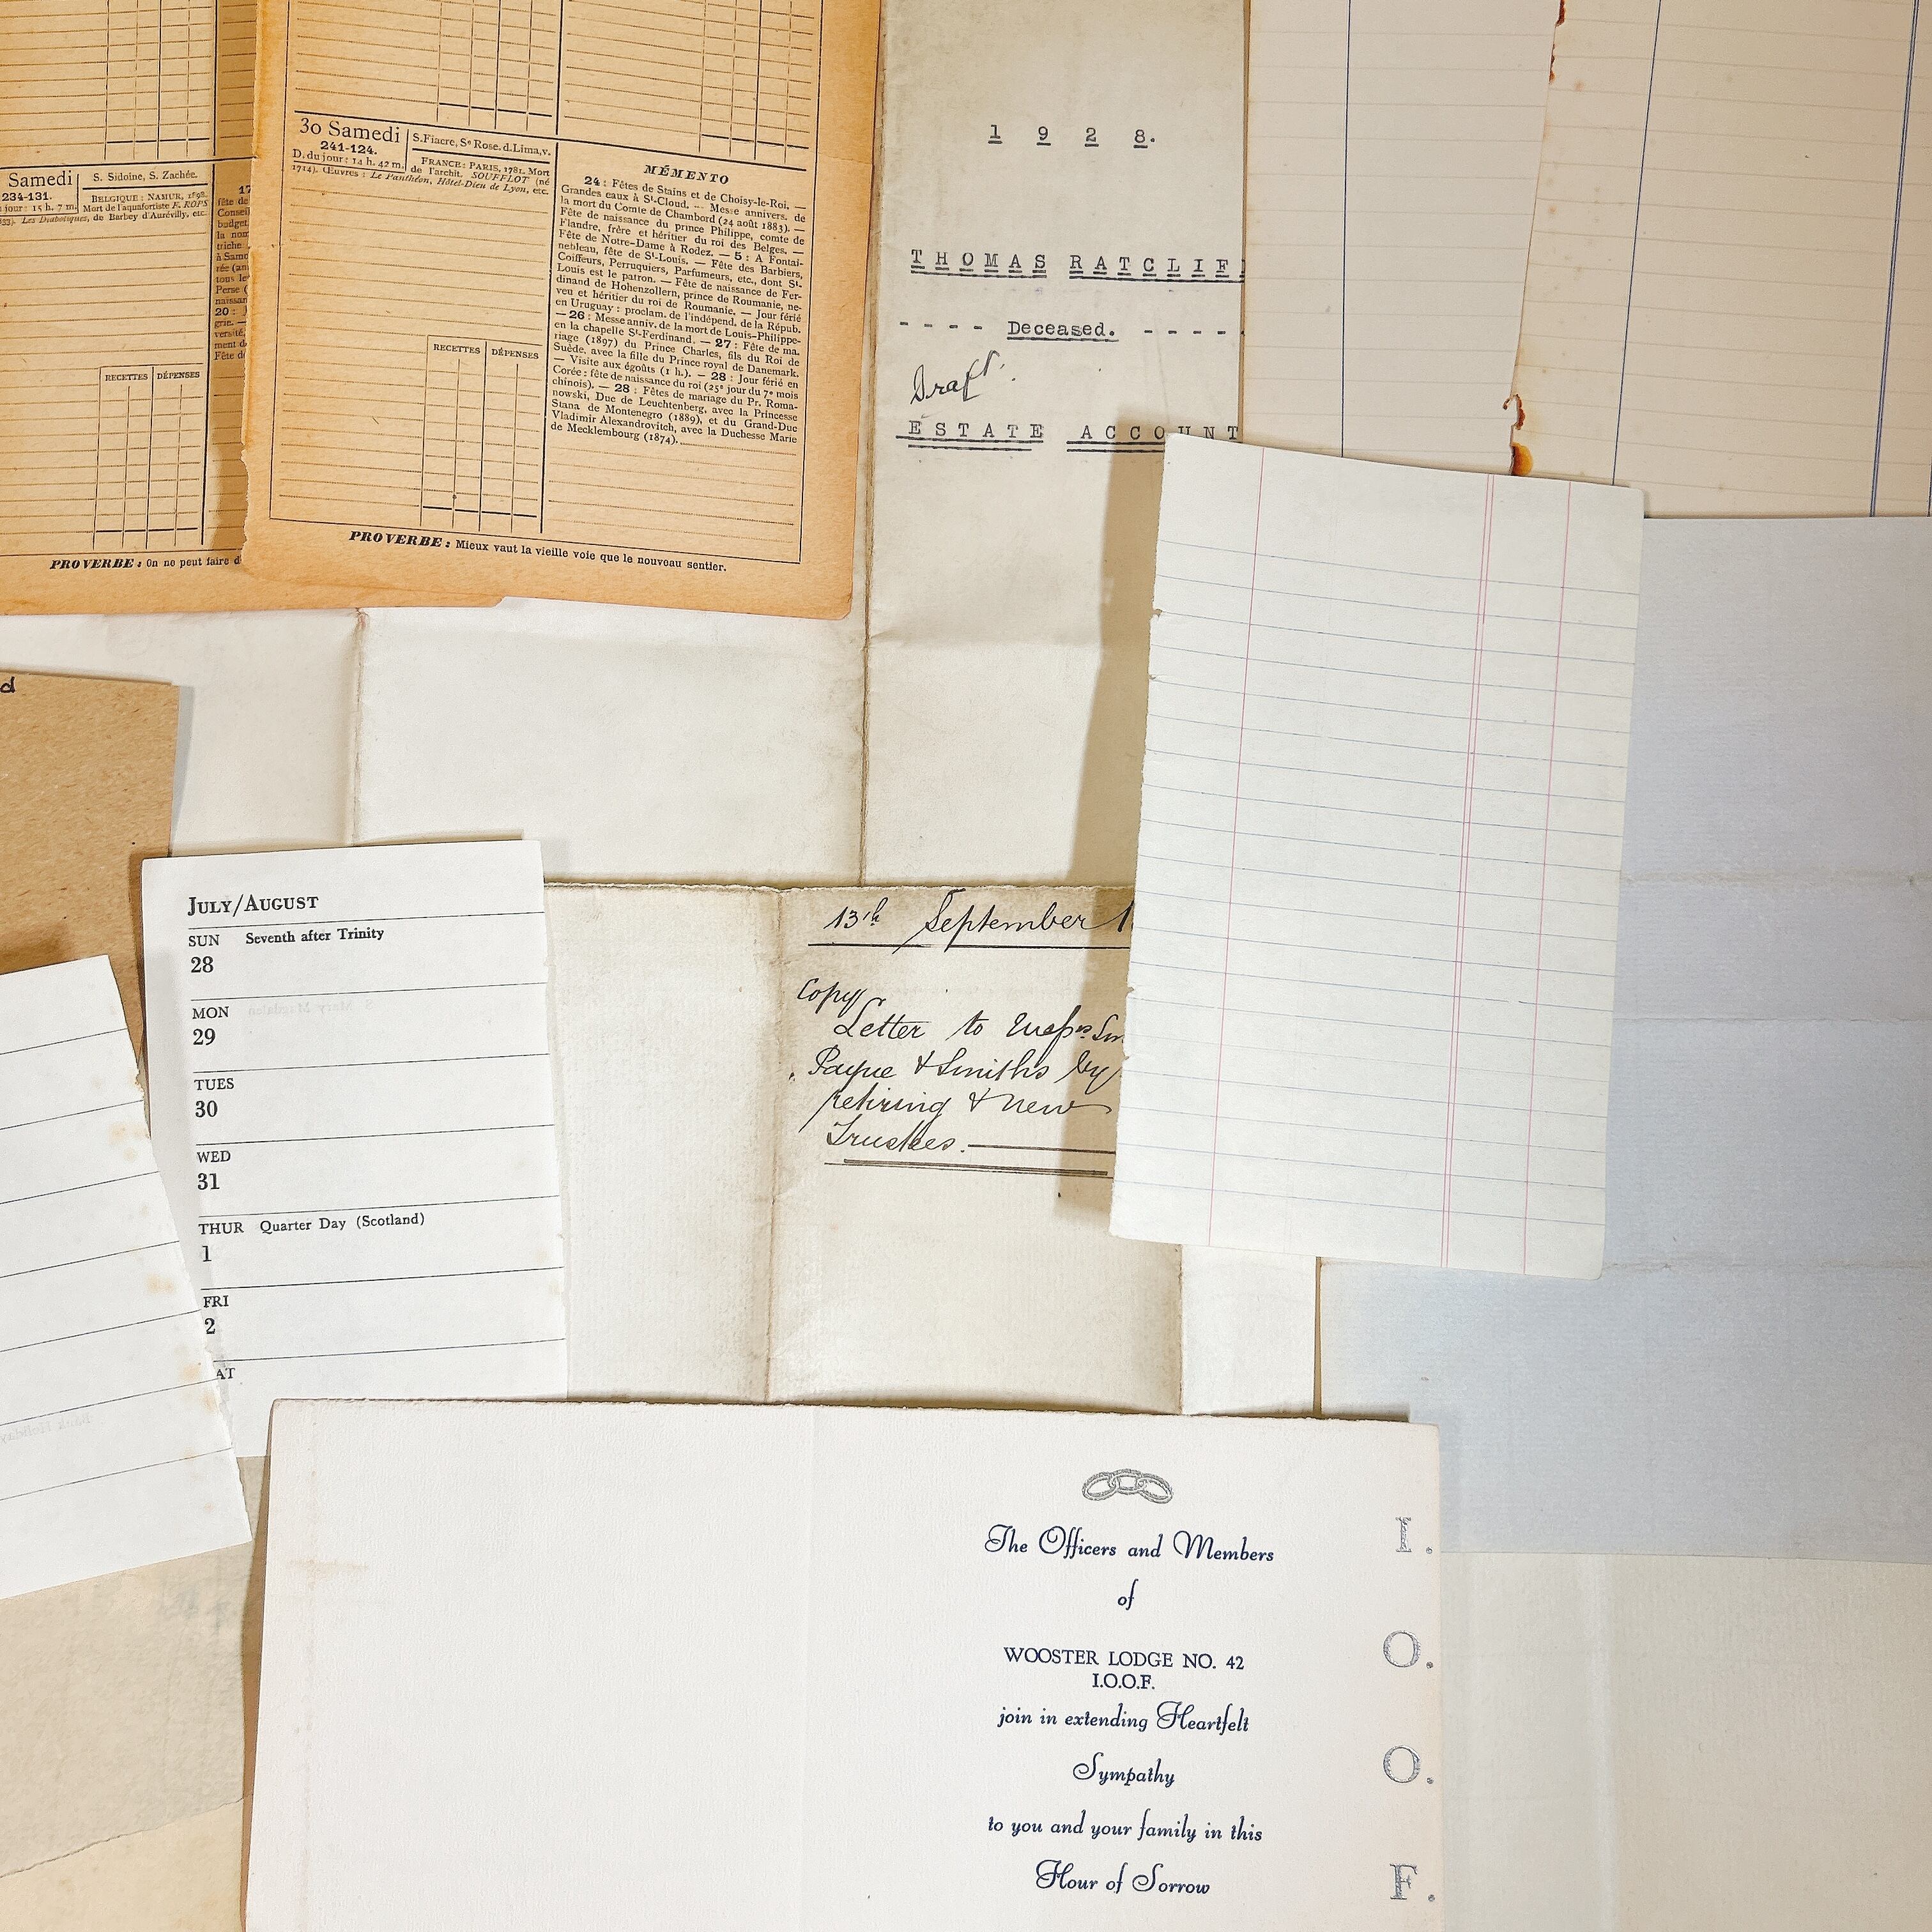 Samedi
234-131.
jour : 15 h. 7 m.
S. Sidoine, S. Zachée.
BELGIQUE : NAMUR, 1898.
Mort de l'aquafortiste F. ROPS
Les Diaboliques, de Barbey d'Aurévilly, etc.
17
fête de
Conseil
budget.
la nom
triche
à Samo
rée (an
tous le
Perse (
naissan
20 : J
grie. —
versité.
ment d
Fête d
RECETTES DÉPENSES
PROVERBE : On ne peut faire d
30 Samedi
241-124.
D. du jour : 14 h. 42 m.
S. Fiacre, Se Rose. d. Lima, v.
FRANCE : PARIS, 1781. Mort
de l'archit. SOUFFLOT (né
1714). Œuvres : Le Panthéon, Hôtel-Dieu de Lyon, etc.
RECETTES DÉPENSES
MÉMENTO
24 : Fêtes de Stains et de Choisy-le-Roi. —
Grandes eaux à St-Cloud. — Messe annivers. de
la mort du Comte de Chambord (24 août 1883). —
Fête de naissance du prince Philippe, comte de
Flandre, frère et héritier du roi des Belges. —
Fête de Notre-Dame à Rodez. — 5 : A Fontai-
nebleau, fête de St-Louis. — Fête des Barbiers,
Coiffeurs, Perruquiers, Parfumeurs, etc., dont St-
Louis est le patron. — Fête de naissance de Fer-
dinand de Hohenzollern, prince de Roumanie, ne-
veu et héritier du roi de Roumanie. — Jour férié
en Uruguay : proclam. de l'indépend. de la Répub.
— 26 : Messe anniv. de la mort de Louis-Philippe
en la chapelle St-Ferdinand. — 27 : Fête de ma-
riage (1897) du Prince Charles, fils du Roi de
Suède, avec la fille du Prince royal de Danemark.
— Visite aux égoûts (1 h.). — 28 : Jour férié en
Corée : fête de naissance du roi (25e jour du 7e mois
chinois). — 28 : Fêtes de mariage du Pr. Roma-
nowski, Duc de Leuchtenberg, avec la Princesse
Stana de Montenegro (1889), et du Grand-Duc
Vladimir Alexandrovitch, avec la Duchesse Marie
de Mecklembourg (1874).
PROVERBE : Mieux vaut la vieille voie que le nouveau sentier.
1928.
THOMAS RATCLIF
- - - - Deceased. - - - -
Draft.
ESTATE ACCOUNT
d
JULY/AUGUST
SUN Seventh after Trinity
28
MON
29
TUES
30
WED
31
THUR Quarter Day (Scotland)
1
FRI
2
AT
13th September 1
Copy
Letter to Messrs. Sm
Payne & Smiths by
retiring & new
Trustees.
The Officers and Members
of
WOOSTER LODGE NO. 42
I.O.O.F.
join in extending Heartfelt
Sympathy
to you and your family in this
Hour of Sorrow
I.
O.
O.
F.